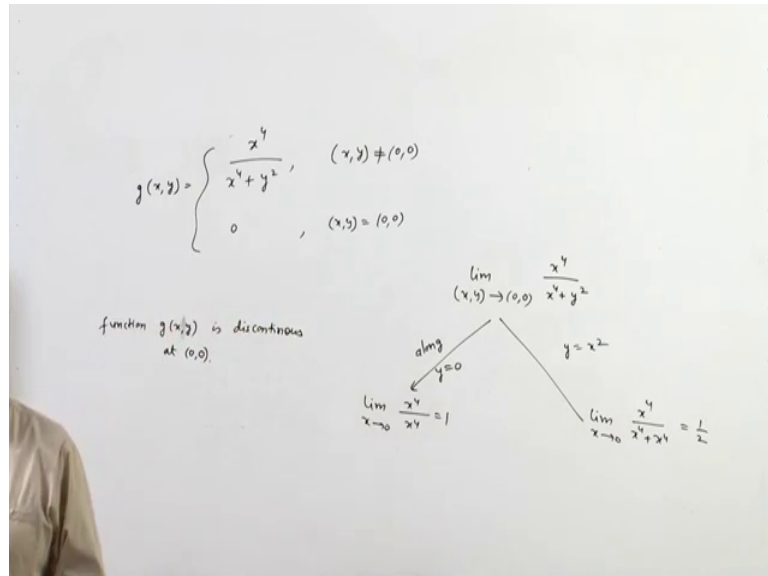 g(x,y) = { x⁴ / (x⁴ + y²) , (x,y) ≠ (0,0)
0 , (x,y) = (0,0)
lim (x,y)→(0,0) x⁴ / (x⁴ + y²)
function g(x,y) is discontinous
at (0,0).
along
y=0
y = x²
lim x→0 x⁴ / x⁴ = 1
lim x→0 x⁴ / (x⁴ + x⁴) = 1/2